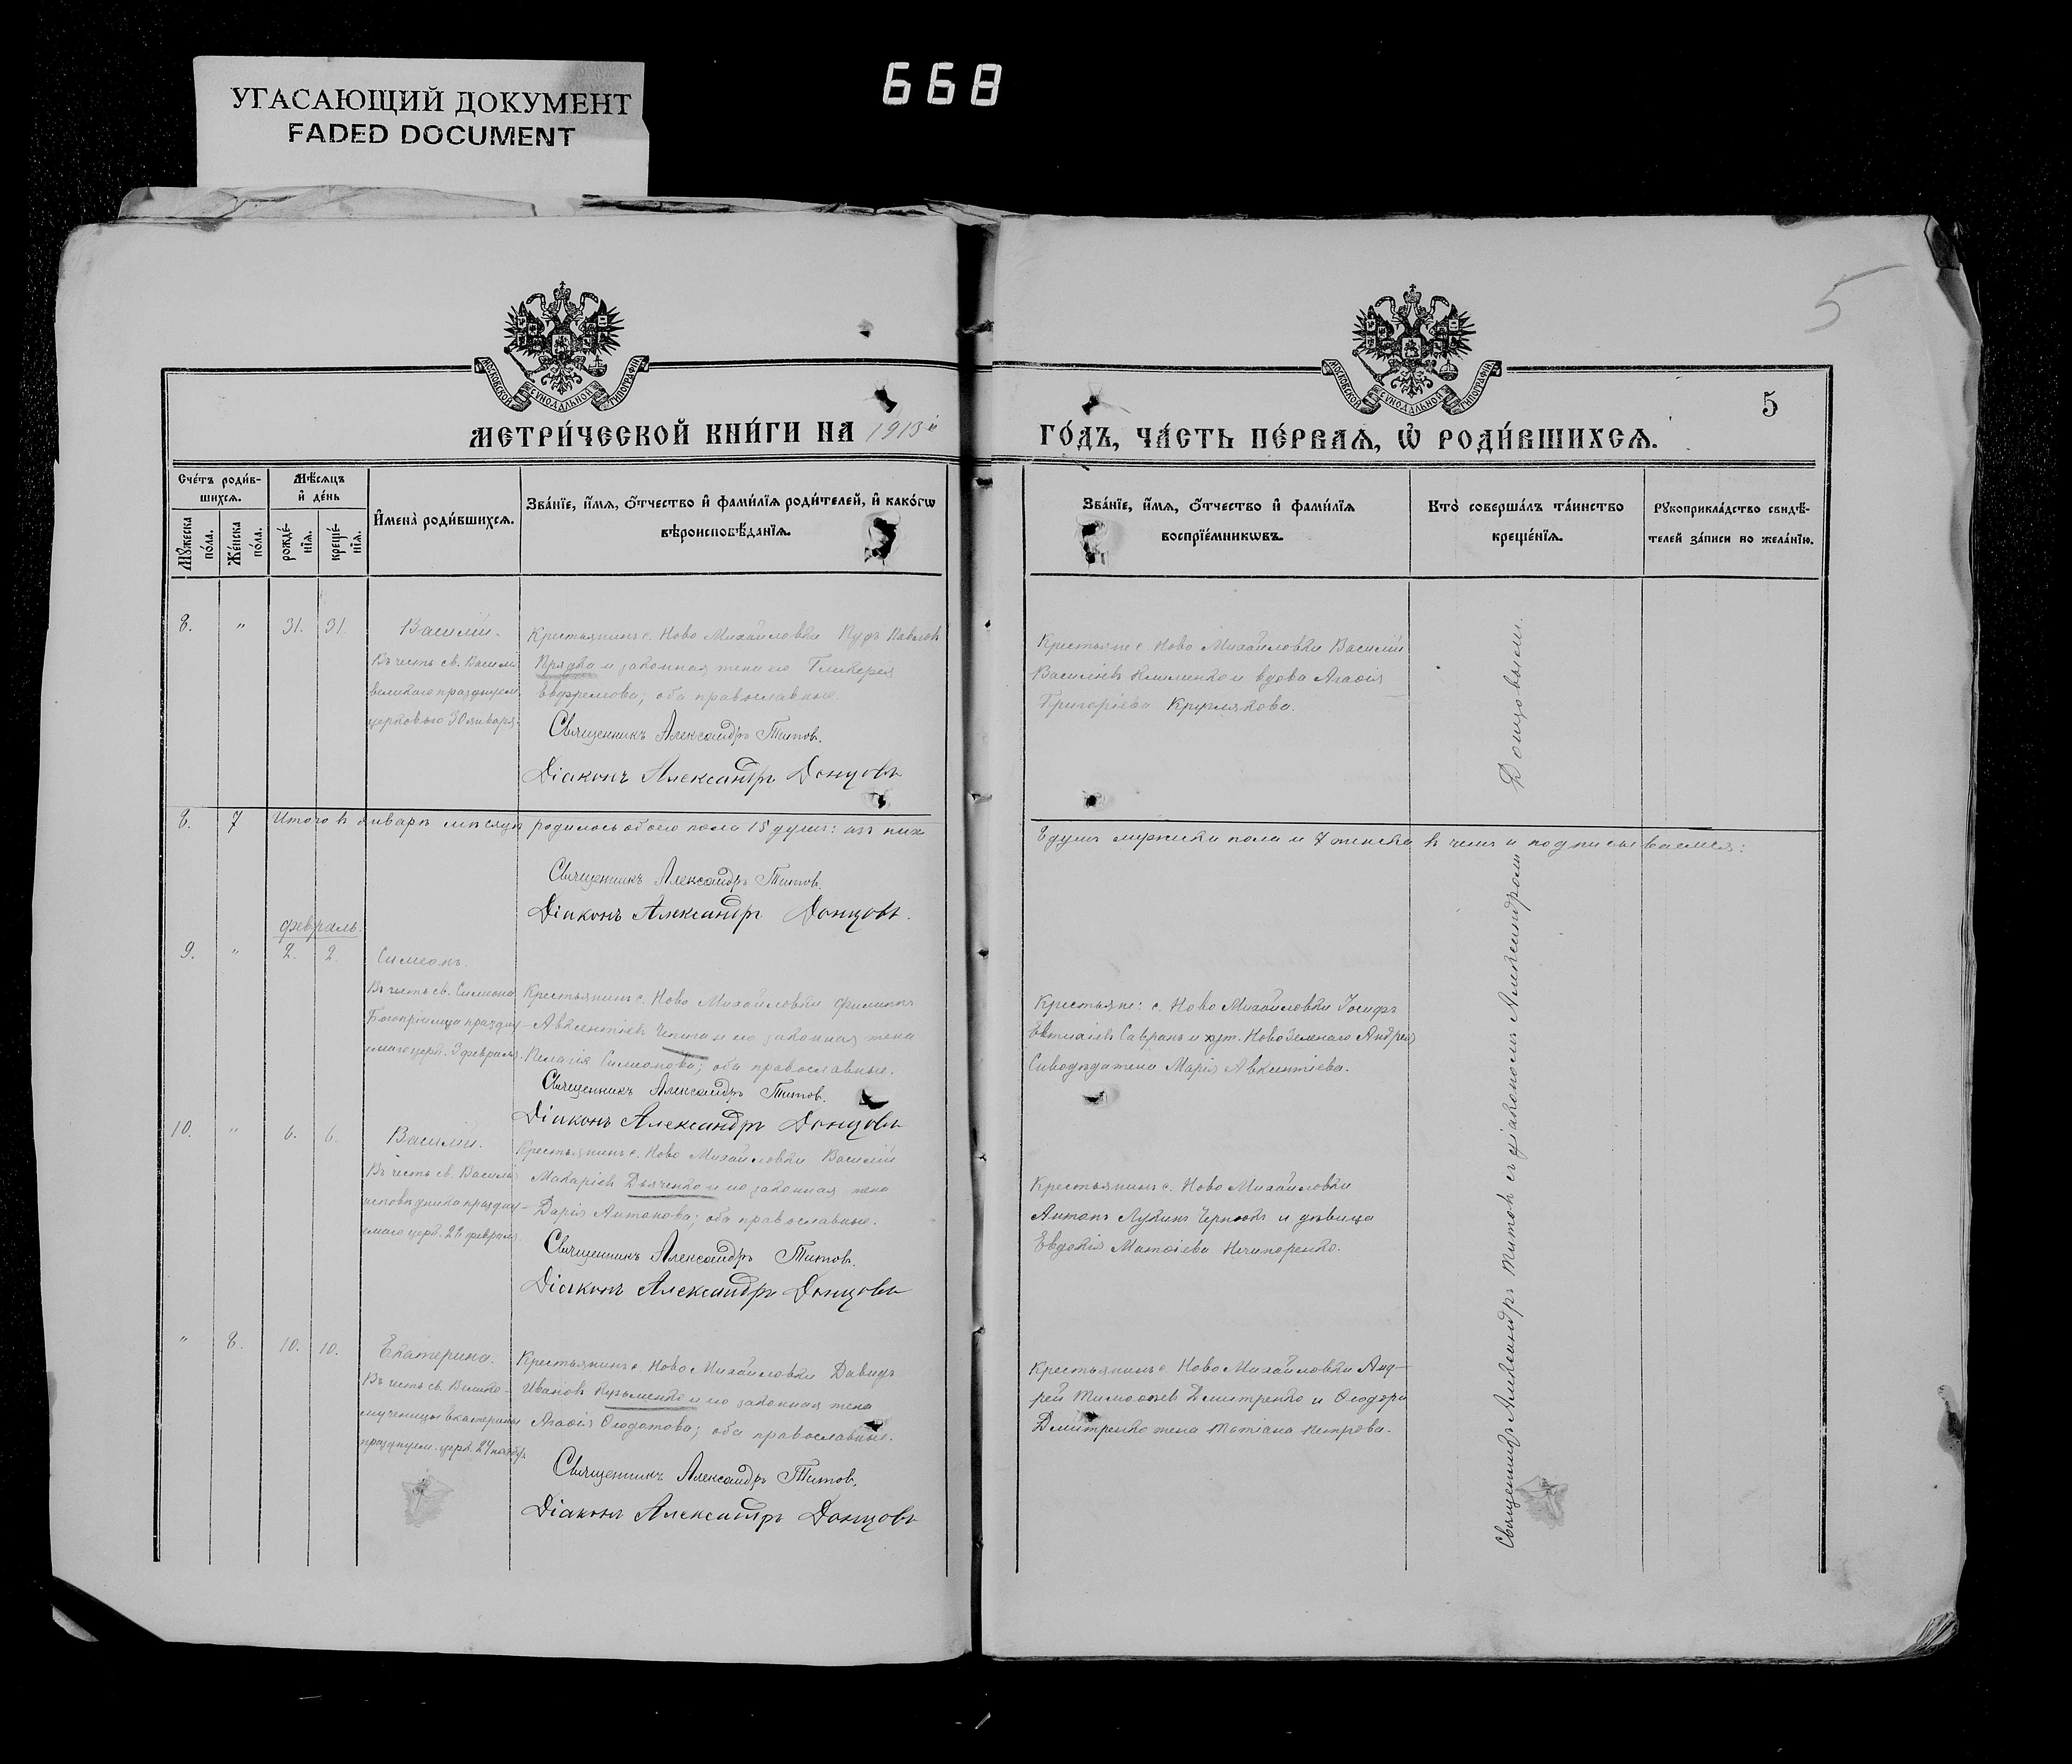 УГАСАЮЩИЙ ДОКУМЕНТ
FADED DOCUMENT
668
5
МОСКОВСКОЙ СѴНОДАЛЬНОЙ ТИПОГРАФІИ
МОСКОВСКОЙ СѴНОДАЛЬНОЙ ТИПОГРАФІИ
5
МЕТРИ́ЧЕСКОЙ КНИ́ГИ НА 1913й
ГО́ДЪ, ЧА́СТЬ ПЕ́РВАѦ, Ѡ҆ РОДИ́ВШИХСѦ.
Сче́тъ роди́в-
шихсѧ.
Мꙋ́жеска по́ла.
Же́нска по́ла.
Мѣ́сѧцъ
и҆ де́нь
рожде́-нїѧ.
креще́-нїѧ.
И҆мена̀ роди́вшихсѧ.
Зва́нїе, и҆́мѧ, ѻ҆́тчество и҆ фами́лїѧ роди́телей, и҆ како́гѡ
вѣроисповѣ́данїѧ.
Зва́нїе, и҆́мѧ, ѻ҆́тчество и҆ фами́лїѧ
воспрїе́мникѡвъ.
Кто̀ соверша́лъ та́инство
креще́нїѧ.
Рꙋкоприкла́дство свидѣ́-
телей за́писи по жела́нїю.
8. " 31. 31. Василій.
Въ честь св. Василія
великаго празднуем.
церковью 30 января.
Крестьянинъ с. Ново Михайловки Пудъ Павловъ
Прядка и законная жена его Гликерія
Евфремова; оба православные.
Священникъ Александръ Титов.
Діаконъ Александръ Донцовъ
Крестьяне с. Ново Михайловки Василій
Василіевъ Клименко и вдова Агафія
Григоріева Круглякова.
8. 7 Итого въ январѣ мѣсяцѣ родилось обоего пола 15 душъ: изъ нихъ
8 душъ мужска пола и 7 женска въ чемъ и подписываемся:
Священникъ Александръ Титов.
Діаконъ Александръ Донцовъ.
Февраль.
9. " 2. 2. Симеонъ.
Въ честь св. Симеона
Богопріимца праздну-
емаго церк. 3 февраля.
Крестьянинъ с. Ново Михайловки Филиппъ
Авксентіевъ и его законная жена
Пелагія Симеонова; оба православные.
Священникъ Александръ Титов.
Діаконъ Александръ Донцовъ
Крестьяне: с. Ново Михайловки Іосифъ
Савранъ и хут. Ново Зеленаго Андрея
жена Марія Авксентіева.
10. " 6. 6. Василій.
Въ честь св. Василія
исповѣдника праздну-
емаго церк. 28 февраля.
Крестьянинъ с. Ново Михайловки Василій
Макаріевъ Дьяченко и его законная жена
Дарія Антонова; оба православные.
Священникъ Александръ Титов.
Діаконъ Александръ Донцовъ
Крестьянинъ с. Ново Михайловки
Антонъ Лукинъ и дѣвица
Евдокія Матфіева Нечипоренко.
" 8. 10. 10. Екатерина.
Въ честь св. Велико-
мученицы Екатерины
празднуем. церк. 24 ноябр.
Крестьянинъ с. Ново Михайловки Давидъ
Ивановъ Кузьменко и его законная жена
Агафія Феодотова; оба православные.
Священникъ Александръ Титов.
Діаконъ Александръ Донцовъ
Крестьянинъ с. Ново Михайловки Анд-
рей Тимофеев Дмитренко и Феодора
Дмитренко жена Татіана Петрова.
Священникъ Александръ Титовъ съ діакономъ Александромъ Донцовымъ.